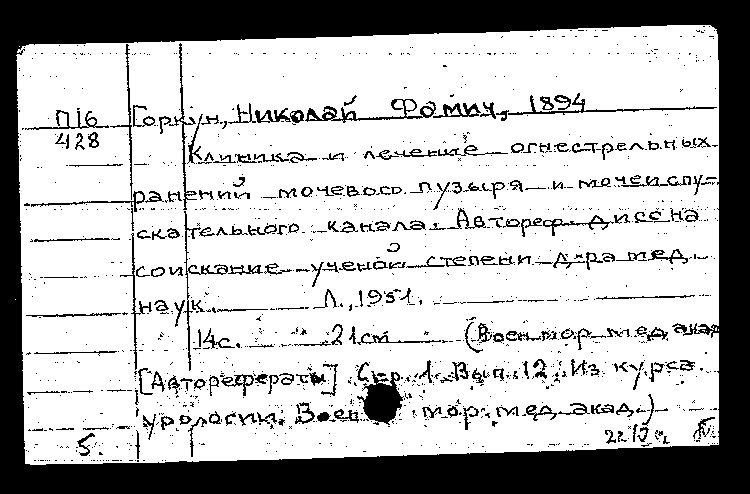 П16 Горкун, Николай Фомич, 1894
428
Клиника и лечение огнестрельных
ранений мочевого пузыря и мочеиспу-
скательного канала. Автореф. дисс на
соискание ученой степени д-ра мед.
наук. Л., 1951.
14с. 21см (Воен мор. мед. акад
[Авторефераты]. Сер. 1. Вып. 12. Из курса
урологии. Воен мор. мед. акад.)
5.